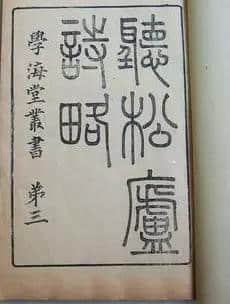 聽松廬
詩略
學海堂叢書 第三